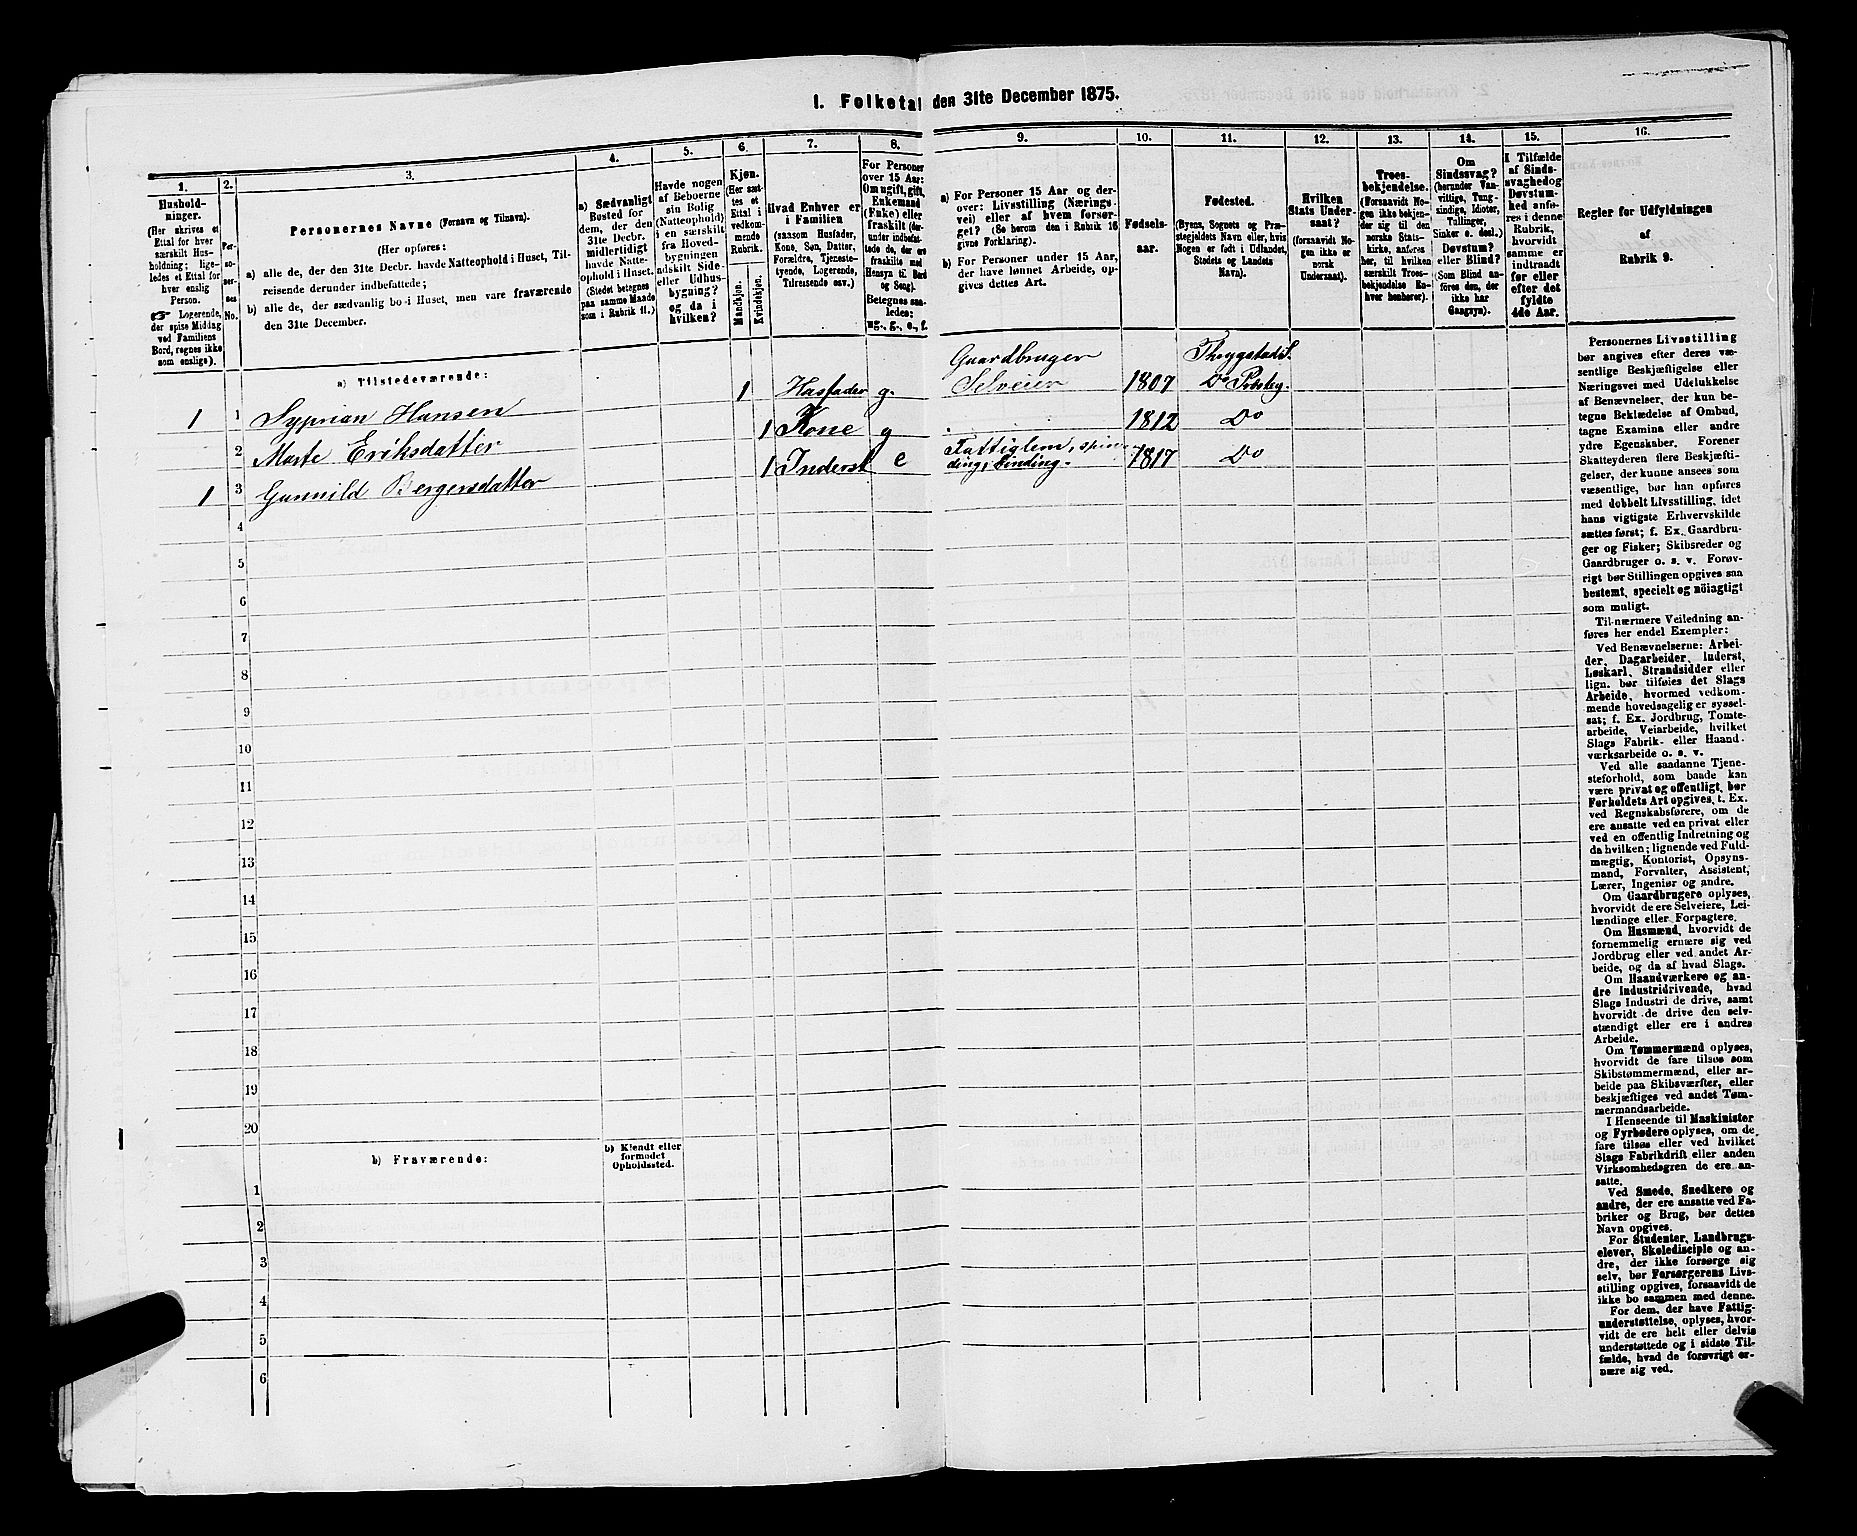 1. Folketal den 31te December 1875.
1.
2.
3.
4.
5.
6.
7.
8.
9.
10.
11.
12.
13.
14.
15.
16.
Hushold-
ninger.
(Her skrives et
Ettal for hver
særskilt Hus-
holdning; lige-
ledes et Ettal for
hver enslig
Person.
☞ Logerende,
der spise Middag
ved Familiens
Bord, regnes ikke
som enslige).
Per-
so-
ner-
nes
No.
Personernes Navne (Fornavn og Tilnavn).
(Her opføres:
a) alle de, der den 31te Decbr. havde Natteophold i Huset, Til-
reisende derunder indbefattede;
b) alle de, der sædvanlig bo i Huset, men vare fraværende
den 31te December.
a) Sædvanligt
Bosted for
dem, der den
31te Decbr.
midlertidigt
havde Natte-
ophold i Huset.
(Stedet betegnes
paa samme Maade
som i Rubrik 11.)
Havde nogen
af Beboerne
sin Bolig
(Natteophold)
i en særskilt
fra Hoved-
bygningen
adskilt Side-
eller Udhus-
bygning?
og da i
hvilken?
Kjøn.
(Her sæt-
tes et
Ettal i
vedkom-
mende
Rubrik.
Mandkjøn.
Kvindekjøn.
Hvad Enhver er
i Familien
(saasom Husfader,
Kone, Søn, Datter,
Forældre, Tjeneste-
tyende, Logerende,
Tilreisende osv.)
For Personer
over 15 Aar:
Om ugift, gift,
Enkemand
(Enke) eller
fraskilt (der-
under indbefat-
tede de, der ere
fraskilte med
Hensyn til Bord
og Seng).
Betegnes saa-
ledes:
ug., g., e., f.
a) For Personer 15 Aar og der-
over: Livsstilling (Nærings-
vei) eller af hvem forsør-
get? (Se herom den i Rubrik 16
givne Forklaring).
b) For Personer under 15 Aar,
der have lønnet Arbeide, op-
gives dettes Art.
Fødsels-
aar.
Fødested.
(Byens, Sognets og Præ-
stegjeldets Navn eller, hvis
Nogen er født i Udlandet,
Stedets og Landets
Navn).
Hvilken
Stats Under-
saat?
(forsaavidt No-
gen ikke er
norsk
Undersaat).
Troes-
bekjendelse.
(Forsaavidt No-
gen ikke bekjen-
der sig til den
norske Stats-
kirke, anføres
her, til hvilken
særskilt Troes-
bekjendelse En-
hver henhører).
Om
Sindssvag?
(herunder Van-
vittige, Tung-
sindige, Idioter,
Tullinger,
Sinker o. desl.)
Døvstum?
eller Blind?
(Som Blind an-
føres den, der
ikke har
Gangsyn).
I Tilfælde
af Sinds-
svaghed og
Døvstum-
hed anfø-
res i denne
Rubrik,
hvorvidt
samme er
indtraadt
før eller
efter det
fyldte
4de Aar.
Regler for Udfyldningen
af
Rubrik 9.
a) Tilstedeværende:
1 1 Syprian Hansen 1 Husfader g. Gaardbruger Selveier 1807 Thrygstads Do Prstzg.
2 Marte Eriksdatter 1 Kone g 1812 Do
1 3 Gunnild Bergersdatter 1 Inderst e Fattiglem, spin- ding, binding. 1817 Do
4
5
6
7
8
9
10
11
12
13
14
15
16
17
18
19
20
b) Fraværende:
b) Kjendt eller
formodet
Opholdssted.
1
2
3
4
5
6
Personernes Livsstilling
bør angives efter deres væ-
sentlige Beskjæftigelse eller
Næringsvei med Udelukkelse
af Benævnelser, der kun be-
tegne Beklædelse af Ombud,
tagne Examina eller andre
ydre Egenskaber. Forener
Skatteyderen flere Beskjæfti-
gelser, der kunne ansees som
væsentlige, bør han opføres
med dobbelt Livsstilling, idet
hans vigtigste Erhvervskilde
sættes først; f. Ex. Gaardbru-
ger og Fisker; Skibsreder og
Gaardbruger o. s. v. Forøv-
rigt bør Stillingen opgives saa
bestemt, specielt og nöiagtigt
som muligt.
Til nærmere Veiledning an-
føres her endel Exempler:
Ved Benævnelserne: Arbei-
der, Dagarbeider, Inderst,
Løskarl, Strandsidder eller
lign. bør tilføies det Slags
Arbeide, hvormed vedkom-
mende hovedsagelig er syssel-
sat; f. Ex. Jordbrug, Tomte-
arbeide, Veiarbeide, hvilket
Slags Fabrik- eller Haand-
værksarbeide o. s. v.
Ved alle saadanne Tjene-
steforhold, som baade kan
være privat og offentligt, bør
Forholdets Art opgives, t. Ex.
ved Regnskabsførere, om de
ere ansatte ved en privat eller
ved en offentlig Indretning og
da hvilken; lignende ved Fuld-
mægtig, Kontorist, Opsyns-
mand, Forvalter, Assistent,
Lærer, Ingeniør og andre.
Om Gaardbrugere oplyses,
hvorvidt de ere Selveiere, Lei-
lændinge eller Forpagtere.
Om Husmænd, hvorvidt de
fornemmelig ernære sig ved
Jordbrug eller ved andet Ar-
beide, og da af hvad Slags.
Om Haandværkere og an-
dre Industridrivende, hvad
Slags Industri de drive, samt
hvorvidt de drive den selv-
stændigt eller ere i andres
Arbeide.
Om Tømmermænd oplyses,
hvorvidt de fare tilsøs som
Skibstømmermænd, eller ar-
beide paa Skibsværfter, eller
beskjæftiges ved andet Tøm-
mermandsarbeide.
I Henseende til Maskinister
og Fyrbødere oplyses, om de
fare tilsøs eller ved hvilket
Slags Fabrikdrift eller anden
Virksomhedsgren de ere an-
satte.
Ved Smede, Snedkere og
andre, der ere ansatte ved Fa-
briker og Brug, bør dettes
Navn opgives.
For Studenter, Landbrugs-
elever, Skoledisciple og an-
dre, der ikke forsørge sig
selv, bør Forsørgerens Livs-
stilling opgives, forsaavidt de
ikke bo sammen med denne.
For dem, der have Fattig-
understøttelse, oplyses, hvor-
vidt de ere helt eller delvis
understøttede og i sidste Til-
fælde, hvad de forøvrigt er-
nære sig ved.